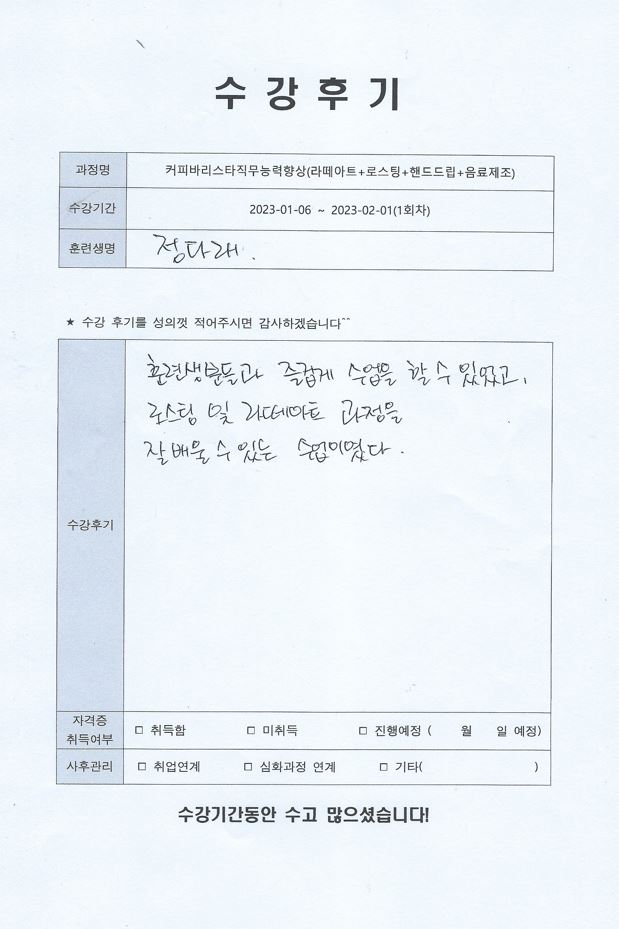 수 강 후 기
과정명 커피바리스타직무능력향상(라떼아트+로스팅+핸드드립+음료제조)
수강기간 2023-01-06 ~ 2023-02-01(1회차)
훈련생명 정다래.
★ 수강 후기를 성의껏 적어주시면 감사하겠습니다^^
훈련생분들과 즐겁게 수업을 할 수 있었고,
로스팅 및 라떼아트 과정을
수강후기 잘 배울 수 있는 수업이였다.
자격증 취득여부 □ 취득함 □ 미취득 □ 진행예정 ( 월 일 예정)
사후관리 □ 취업연계 □ 심화과정 연계 □ 기타( )
수강기간동안 수고 많으셨습니다!